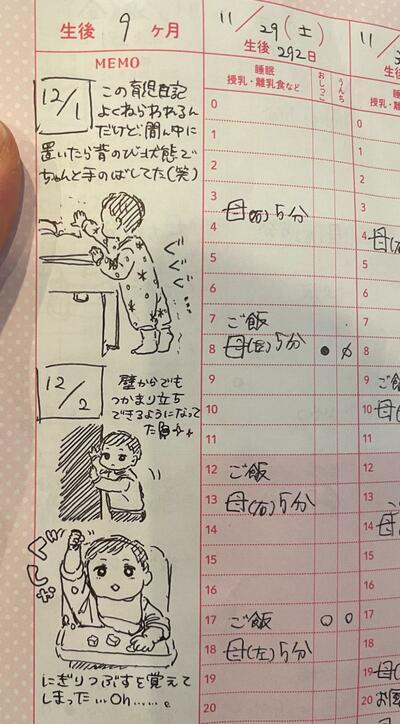 生後 9 ヶ月
MEMO
12/1
この育児日記
よくねらわれるん
だけど間ん中に
置いたら背のび状態で
ちゃんと手のばしてた(笑)
ぐぐぐ…
12/2
壁からでも
つかまり立ち
できるようになって
た
ぐしゃ
にぎりつぶすを覚えて
しまった…Oh……。
11/29(土)
生後 292日
睡眠
授乳・離乳食など
おしっこ
うんち
0
1
2
3
母(右)5分
4
5
6
7 ご飯
8 母(左)5分
9
10
11
12 ご飯
13 母(右)5分
14
15
16
17 ご飯
18 母(左)5分
19
20
11/
0
1
2
3
4 母
5
6
7
8
9 ご飯
10 母
11
12
13
14 母
15
16
17
18
19 母
20